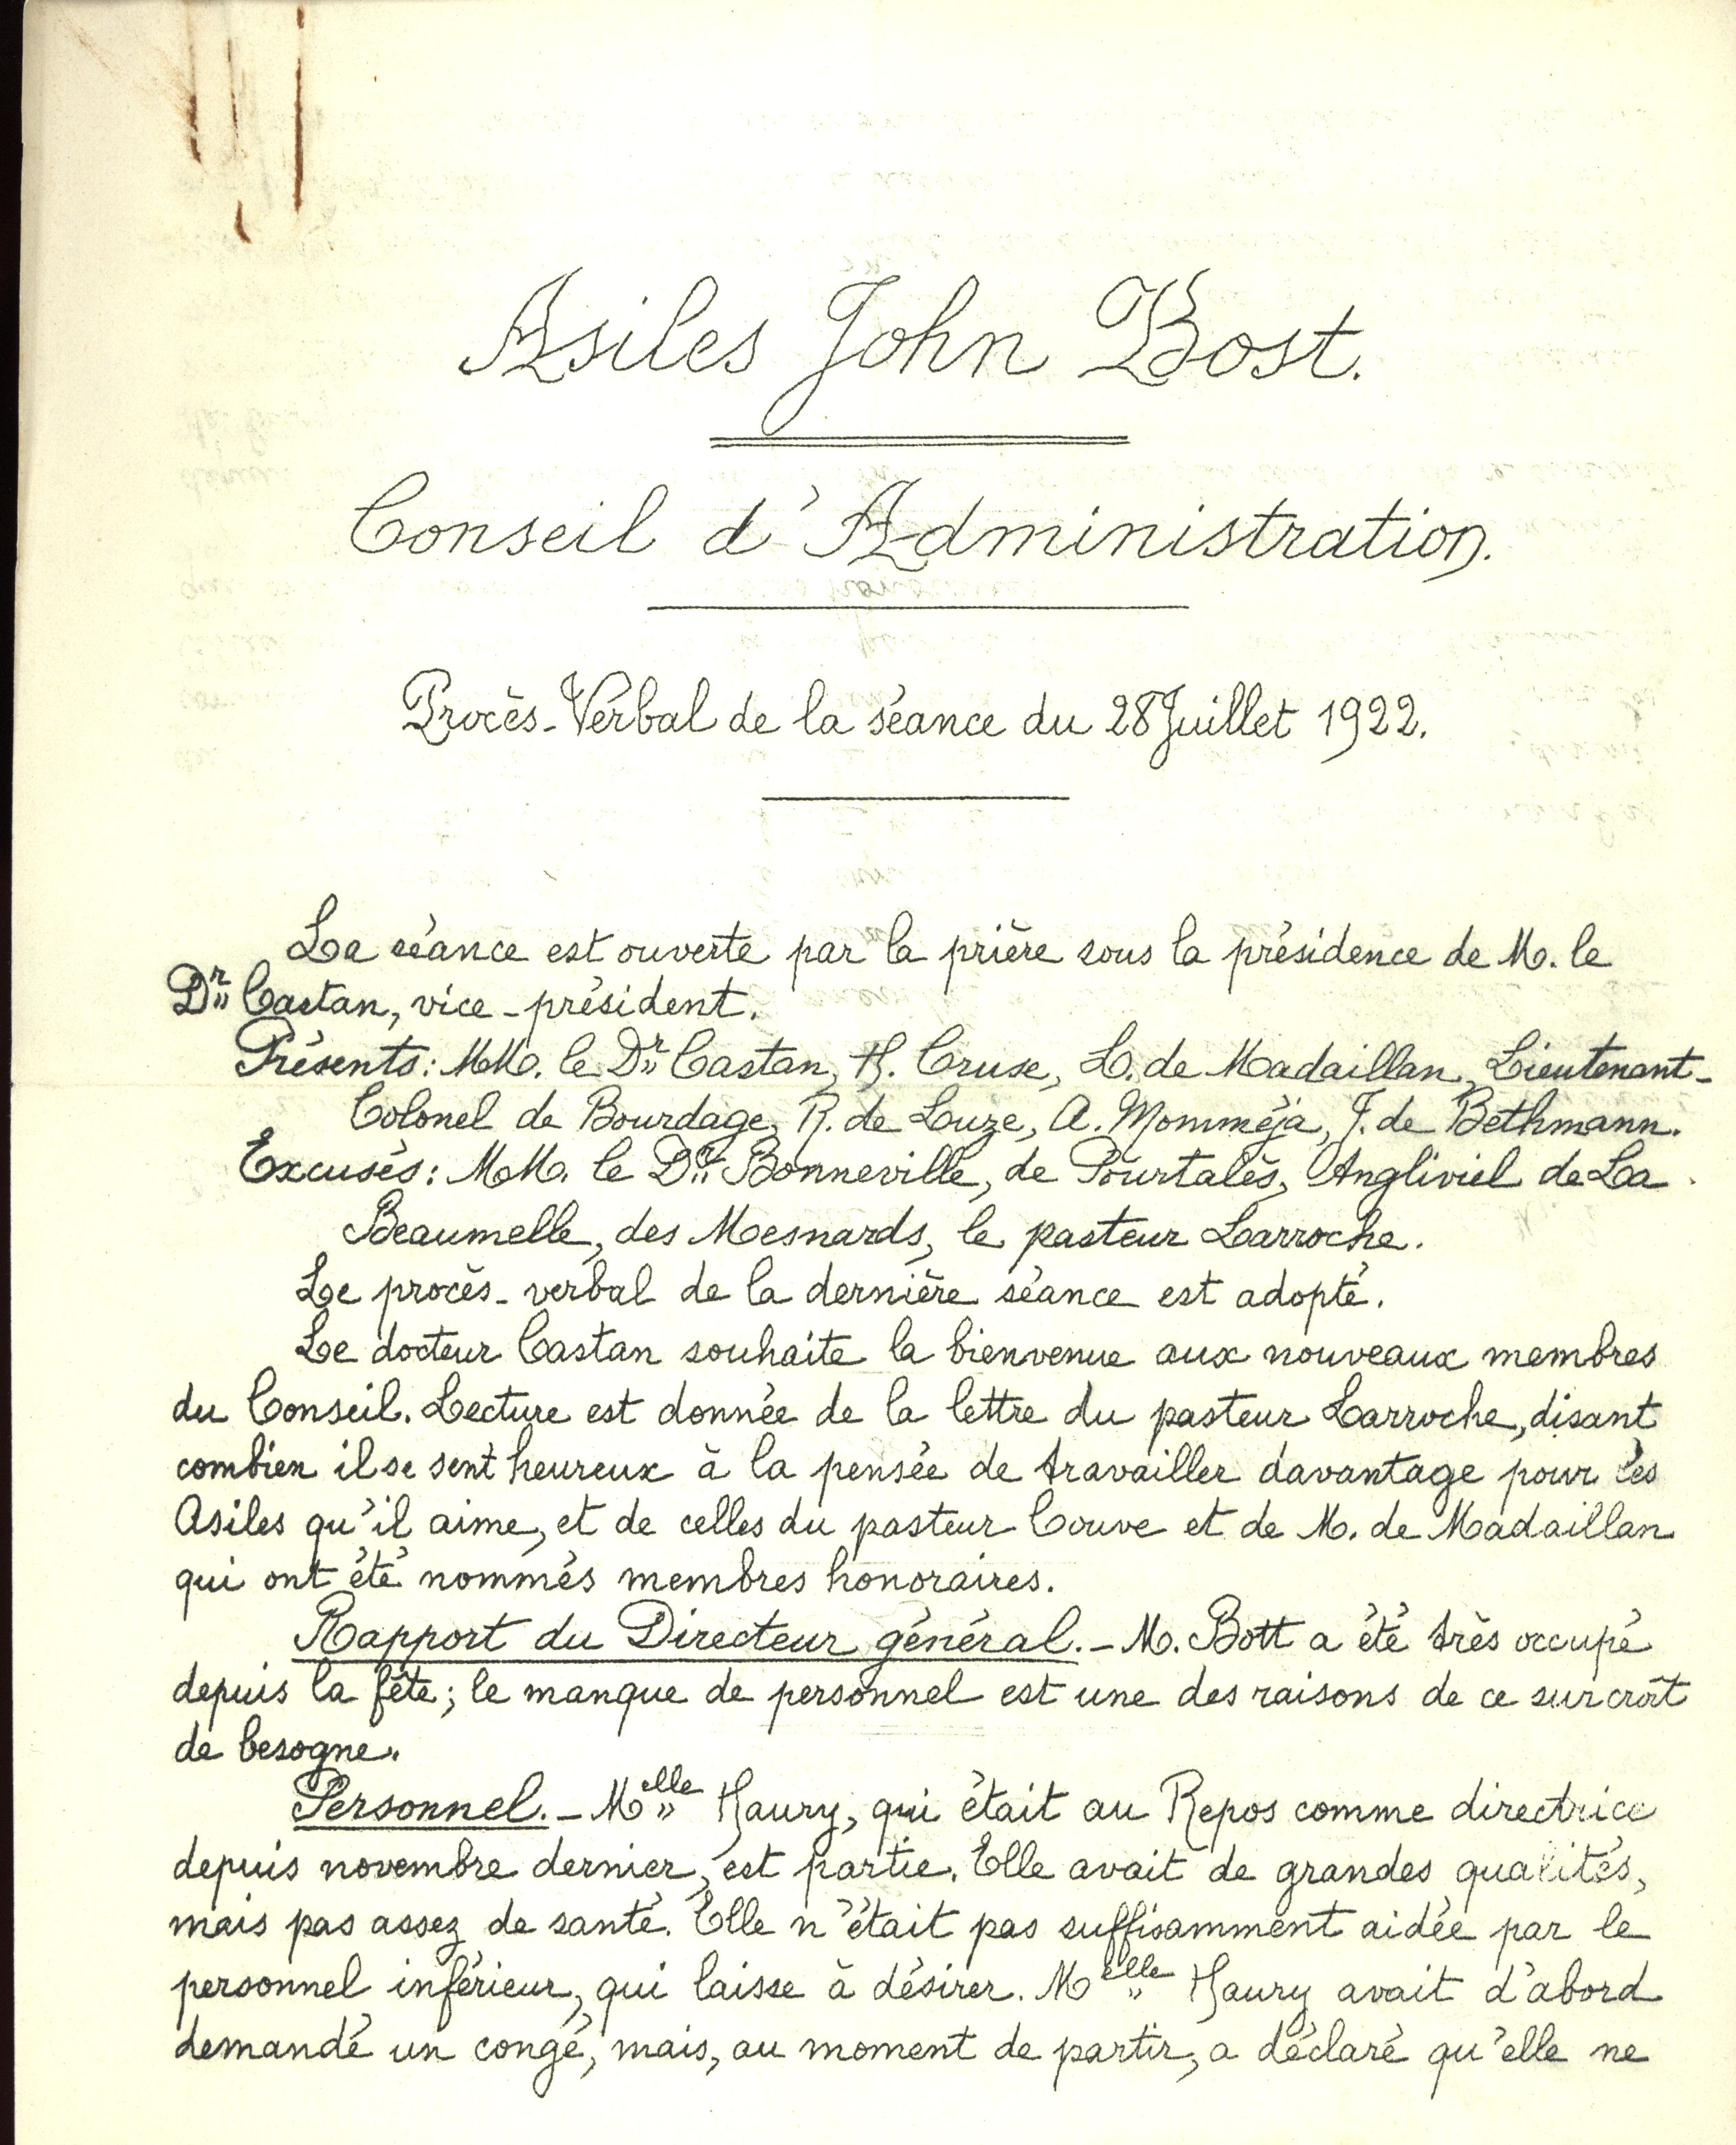 Asiles John Bost.
Conseil d'Administration.
Procès-Verbal de la séance du 28 Juillet 1922.
La séance est ouverte par la prière sous la présidence de M. le
Dr Castan, vice-président.
Présents: MM. le Dr Castan, H. Cruse, L. de Madaillan, Lieutenant-
Colonel de Bourdage, R. de Luze, A. Momméja, J. de Bethmann.
Excusés: MM. le Dr Bonneville, de Pourtalès, Angliviel de La
Beaumelle, des Mesnards, le pasteur Larroche.
Le procès-verbal de la dernière séance est adopté.
Le docteur Castan souhaite la bienvenue aux nouveaux membres
du Conseil. Lecture est donnée de la lettre du pasteur Larroche, disant
combien il se sent heureux à la pensée de travailler davantage pour les
Asiles qu'il aime, et de celles du pasteur Couve et de M. de Madaillan
qui ont été nommés membres honoraires.
Rapport du Directeur général. - M. Bott a été très occupé
depuis la fête; le manque de personnel est une des raisons de ce surcroît
de besogne.
Personnel. - Melle Haury, qui était au Repos comme directrice
depuis novembre dernier, est partie. Elle avait de grandes qualités,
mais pas assez de santé. Elle n'était pas suffisamment aidée par le
personnel inférieur, qui laisse à désirer. Melle Haury avait d'abord
demandé un congé, mais, au moment de partir, a déclaré qu'elle ne